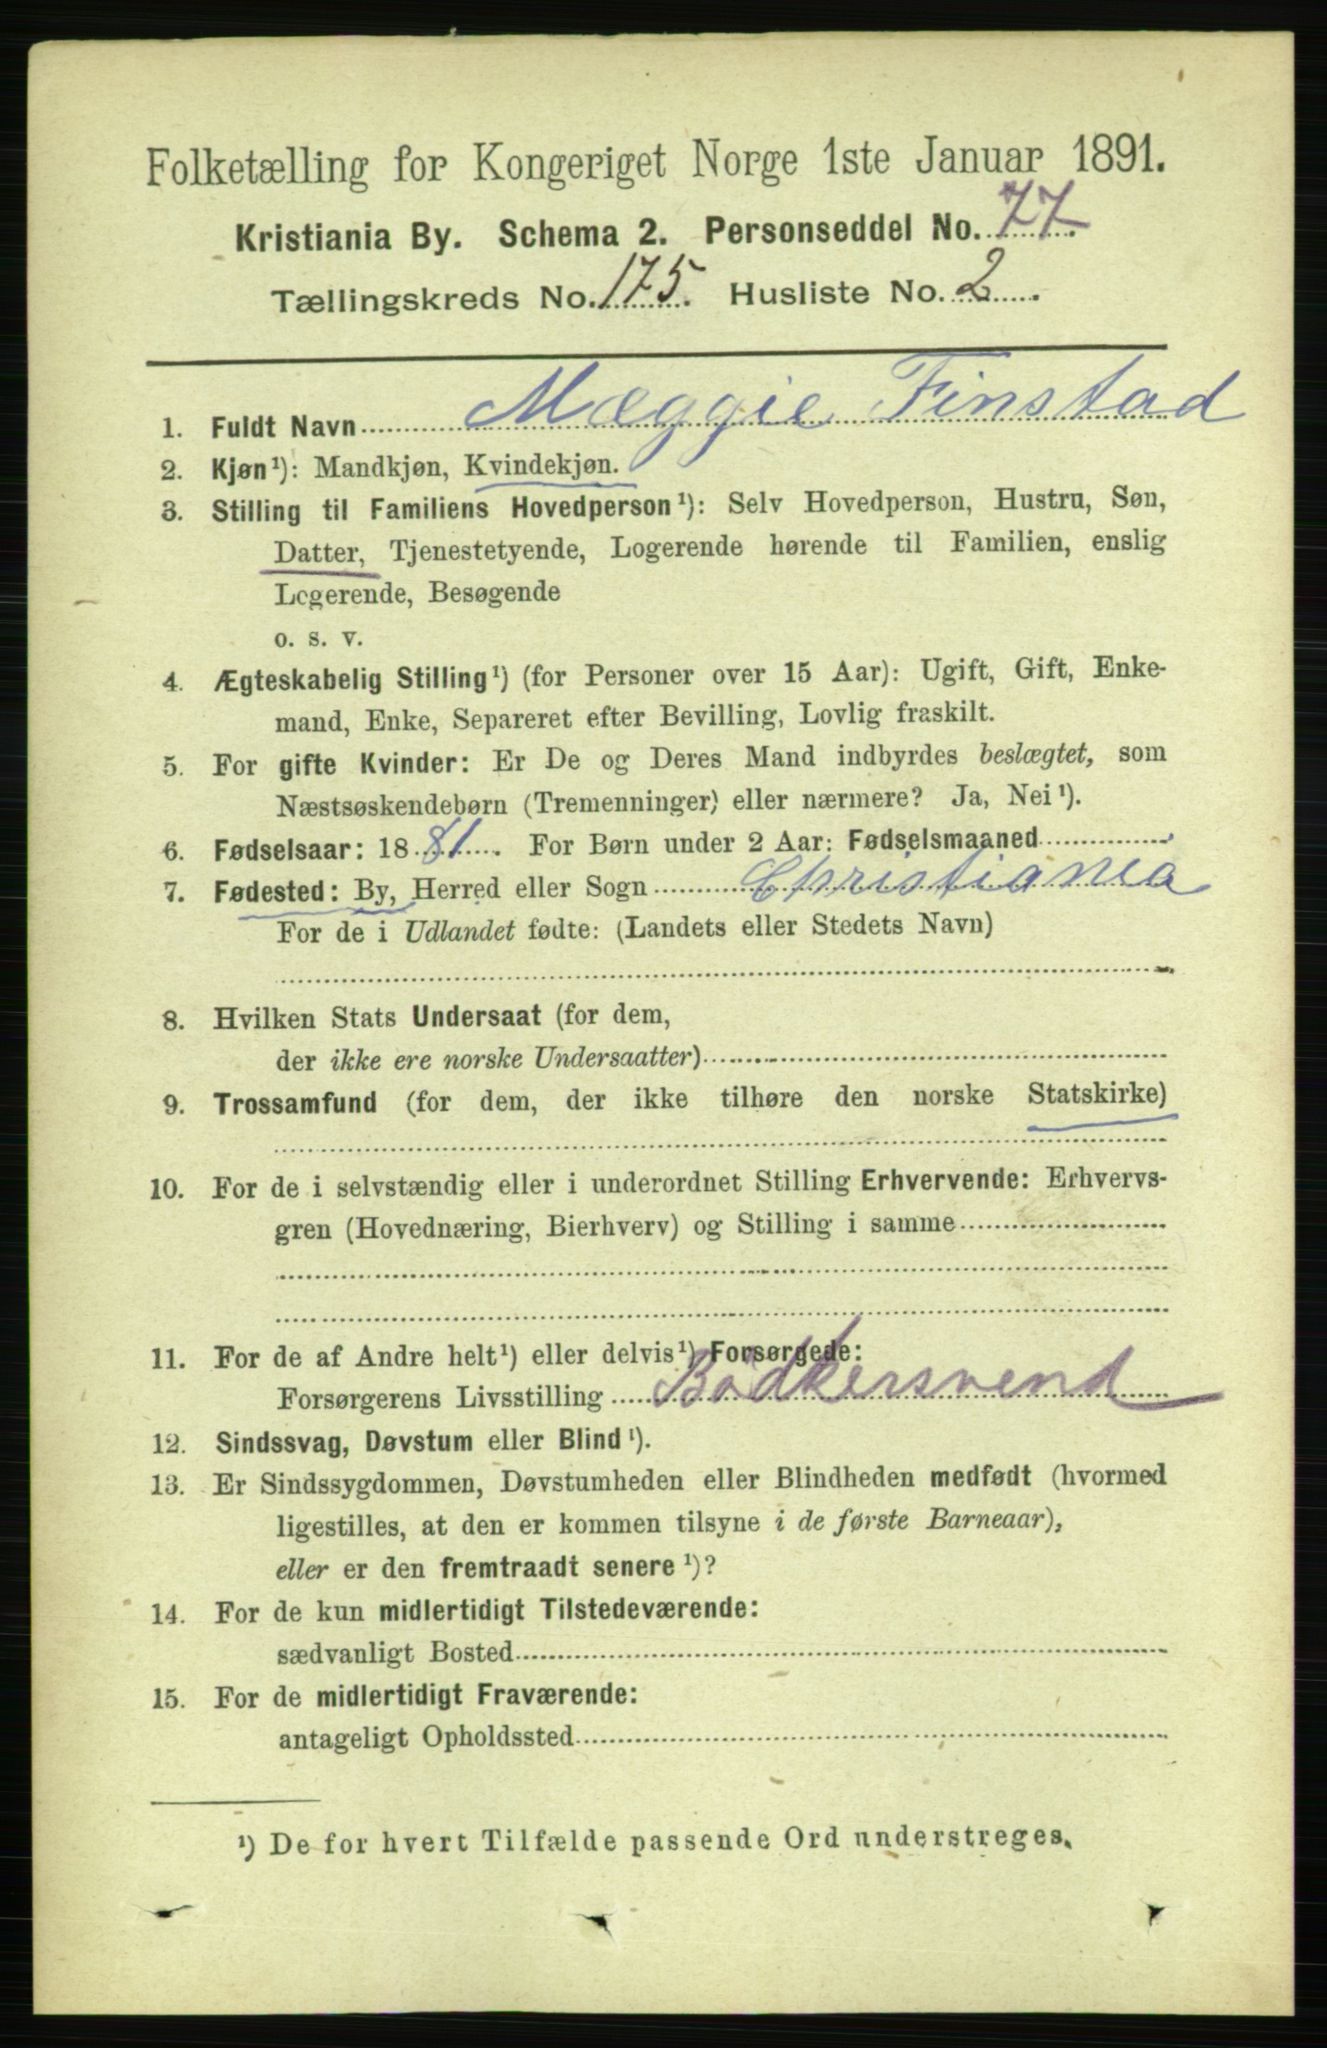 Folketælling for Kongeriget Norge 1ste Januar 1891.
Kristiania By. Schema 2. Personseddel No. 77.
Tællingskreds No. 175. Husliste No. 2
1. Fuldt Navn Mæggie Finstad
2. Kjøn¹): Mandkjøn, Kvindekjøn.
3. Stilling til Familiens Hovedperson¹): Selv Hovedperson, Hustru, Søn,
Datter, Tjenestetyende, Logerende hørende til Familien, enslig
Logerende, Besøgende
o. s. v.
4. Ægteskabelig Stilling¹) (for Personer over 15 Aar): Ugift, Gift, Enke-
mand, Enke, Separeret efter Bevilling, Lovlig fraskilt.
5. For gifte Kvinder: Er De og Deres Mand indbyrdes beslægtet, som
Næstsøskendebørn (Tremenninger) eller nærmere? Ja, Nei¹).
6. Fødselsaar: 1881. For Børn under 2 Aar: Fødselsmaaned
7. Fødested: By, Herred eller Sogn Christiania
For de i Udlandet fødte: (Landets eller Stedets Navn)
8. Hvilken Stats Undersaat (for dem,
der ikke ere norske Undersaatter)
9. Trossamfund (for dem, der ikke tilhøre den norske Statskirke)
10. For de i selvstændig eller i underordnet Stilling Erhvervende: Erhvervs-
gren (Hovednæring, Bierhverv) og Stilling i samme
11. For de af Andre helt¹) eller delvis¹) Forsørgede:
Forsørgerens Livsstilling Bødkersvend
12. Sindssvag, Døvstum eller Blind¹).
13. Er Sindssygdommen, Døvstumheden eller Blindheden medfødt (hvormed
ligestilles, at den er kommen tilsyne i de første Barneaar),
eller er den fremtraadt senere¹)?
14. For de kun midlertidigt Tilstedeværende:
sædvanligt Bosted
15. For de midlertidigt Fraværende:
antageligt Opholdssted
¹) De for hvert Tilfælde passende Ord understreges.